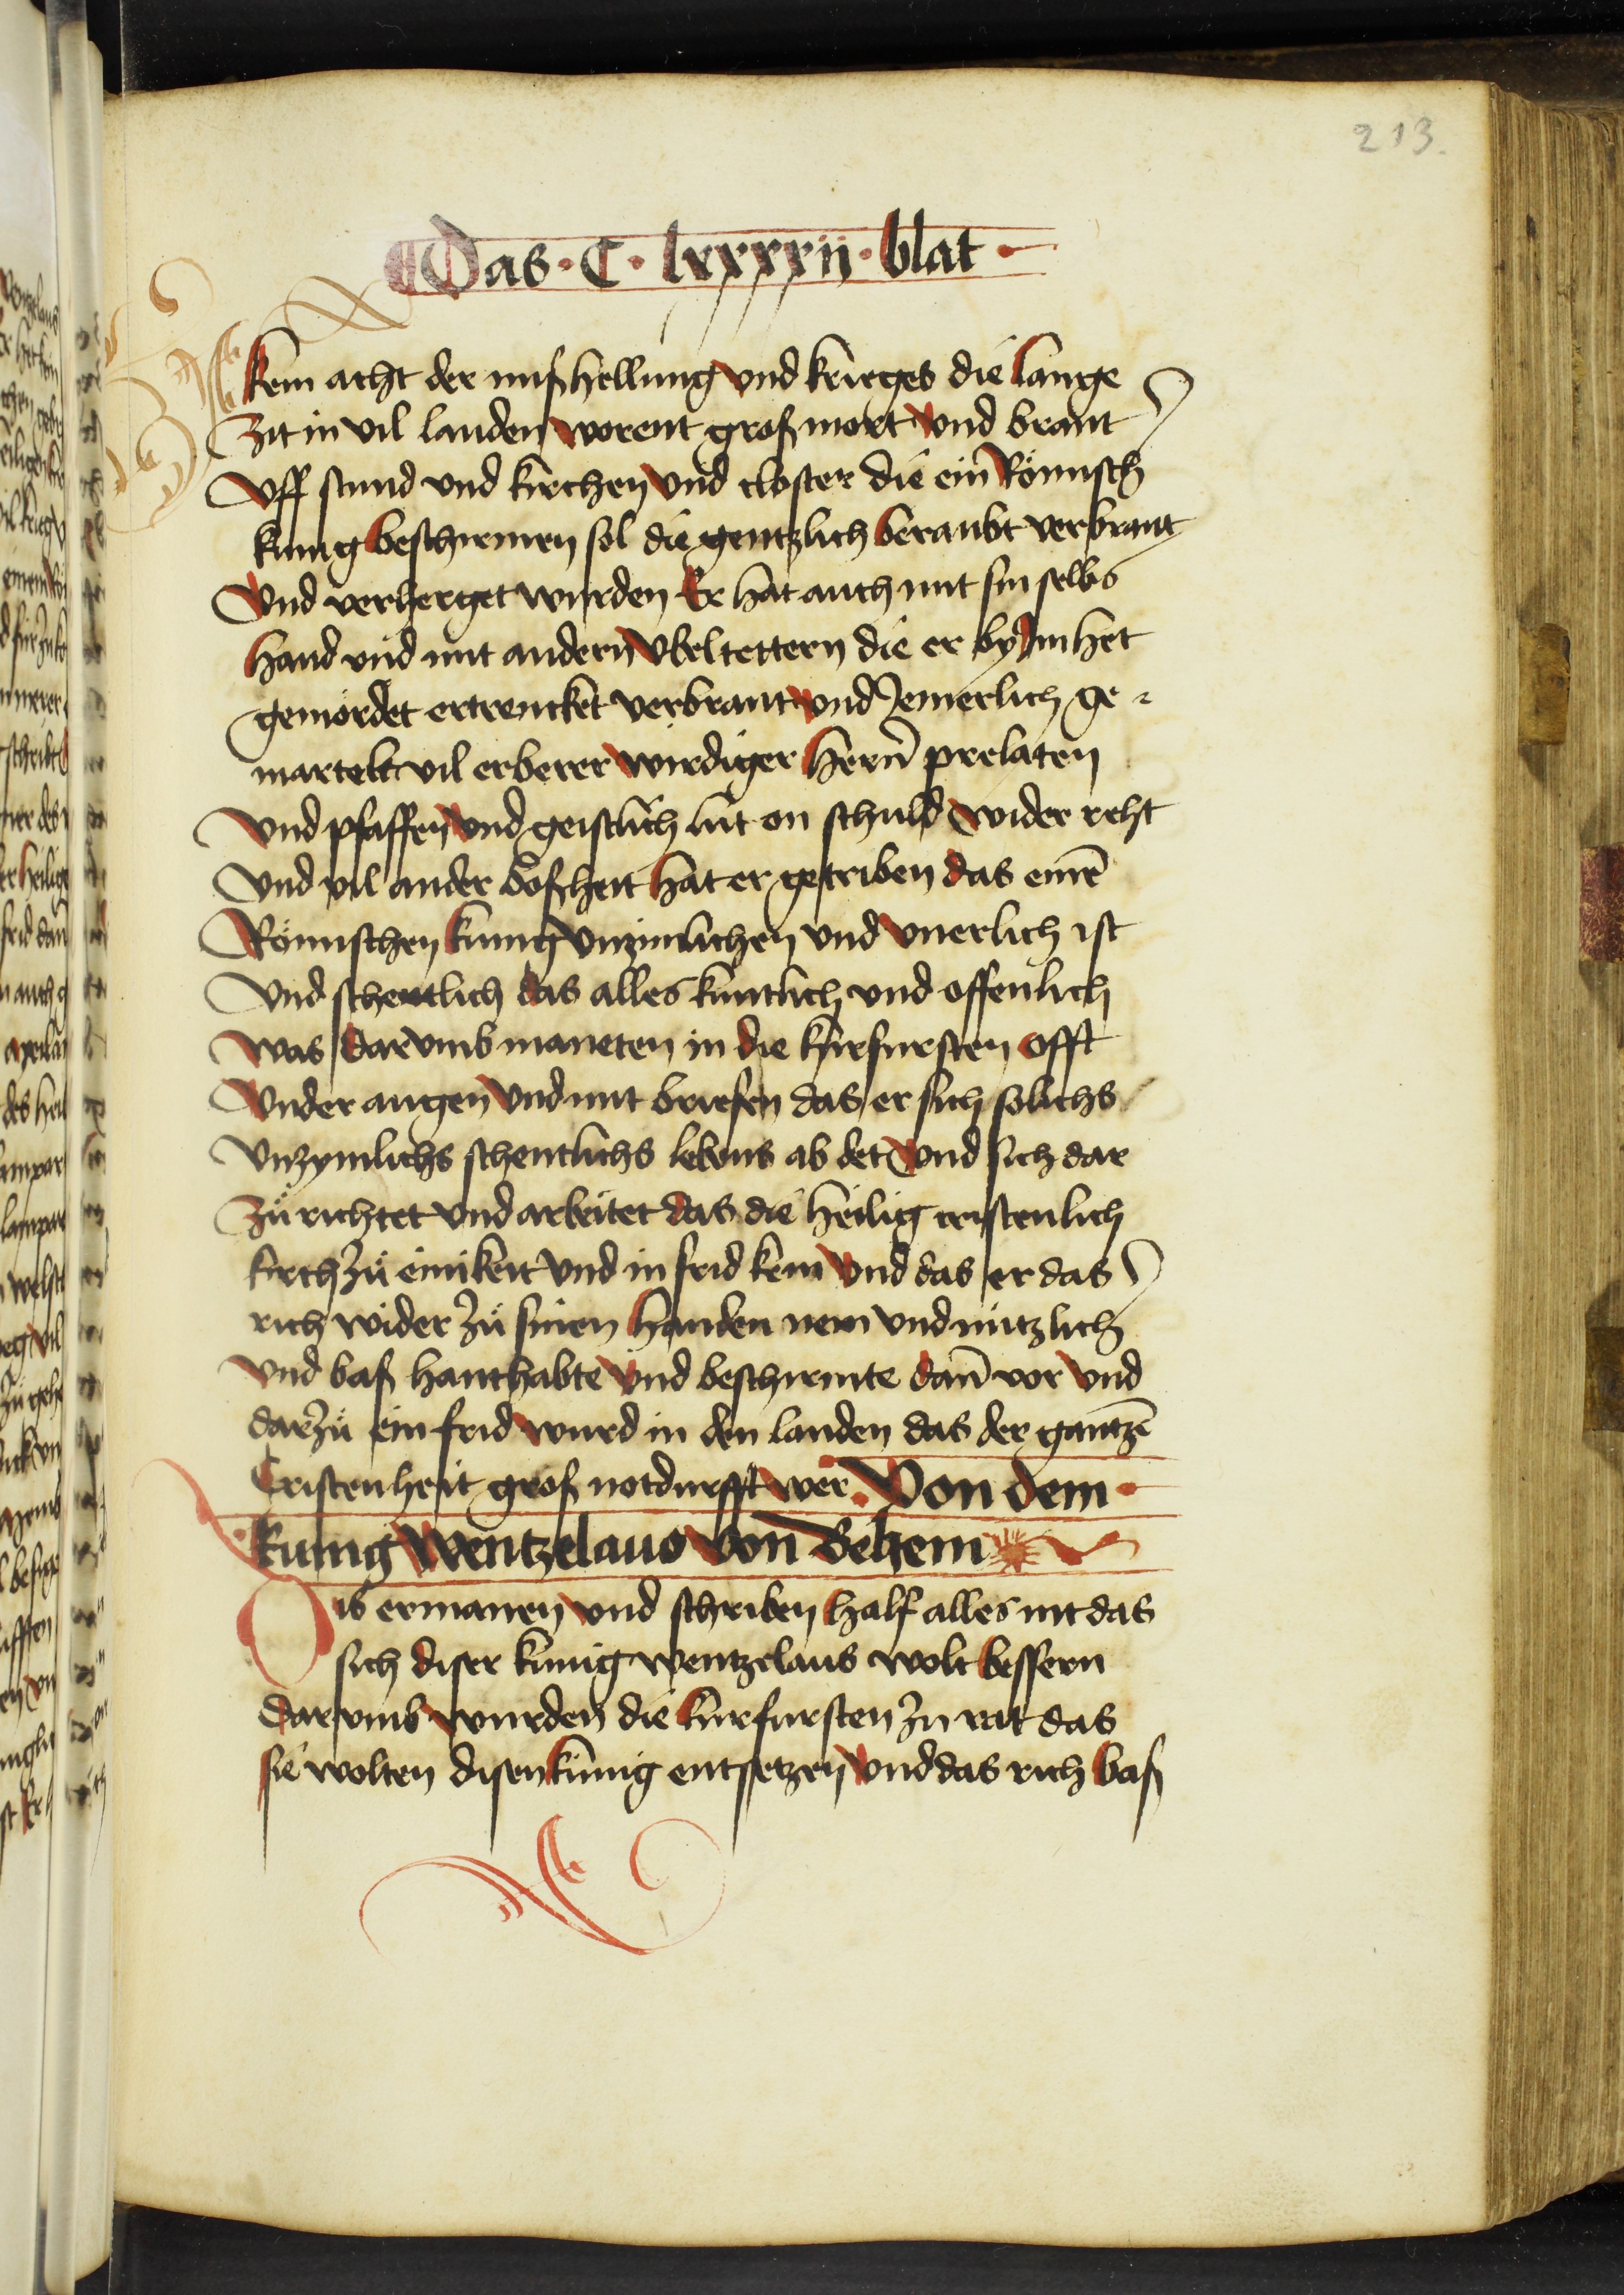 213.
Das · C · lxxxxii · blat ·
kein acht der mißhellung vnd krieges die lange
Zit in vil landen worent groß mort vnd brant
Vff stund vnd kirchen vnd closter die ein Römisch
kunig beschirmen sol die gentzlich beraubt verbrant
Vnd verherget wurden Er hat auch mit sin selbs
hand vnd mit andern vbeltettern die er by Im het
gemördet ertrencket verbrant vnd Jemerlich ge-
martelt vil erberer wirdiger hern̄ prelaten
Vnd pfaffen vnd geistlich lüt on schuld wider reht
Vnd vil ander boßheit hat er getriben das einē
Römischen kunig vnzimlichen vnd vnerlich ist
Vnd schentlich das alles kuntlich vnd offenlich
Was darvmb maneten in die kurfursten offt
Vnder augen vnd mit briefen das er sich solichs
Vnzymlichs schentlichs lebens ab det vnd sich dar
Zů richtet vnd arbeitet das die heilig cristenlich
kirch Zů einikeit vnd in frid kem vnd das er das
rich wider Zů sinen handen nem vnd nützlich
Vnd baß hanthabte vnd beschirmte dan̄ vor vnd
darZů ein frid wurd in den landen das der gantzē
Cristenheit groß notdurfft wer. Von dem ·
kunig Wentzelaus von Behem
Dis ermanen vnd schriben half alles nit das
sich diser kunig wentzelaus wolt bessern
darvmb wurden die kurfursten Zu rat das
sie wolten disen kunig entsetzen vnd das rich baß